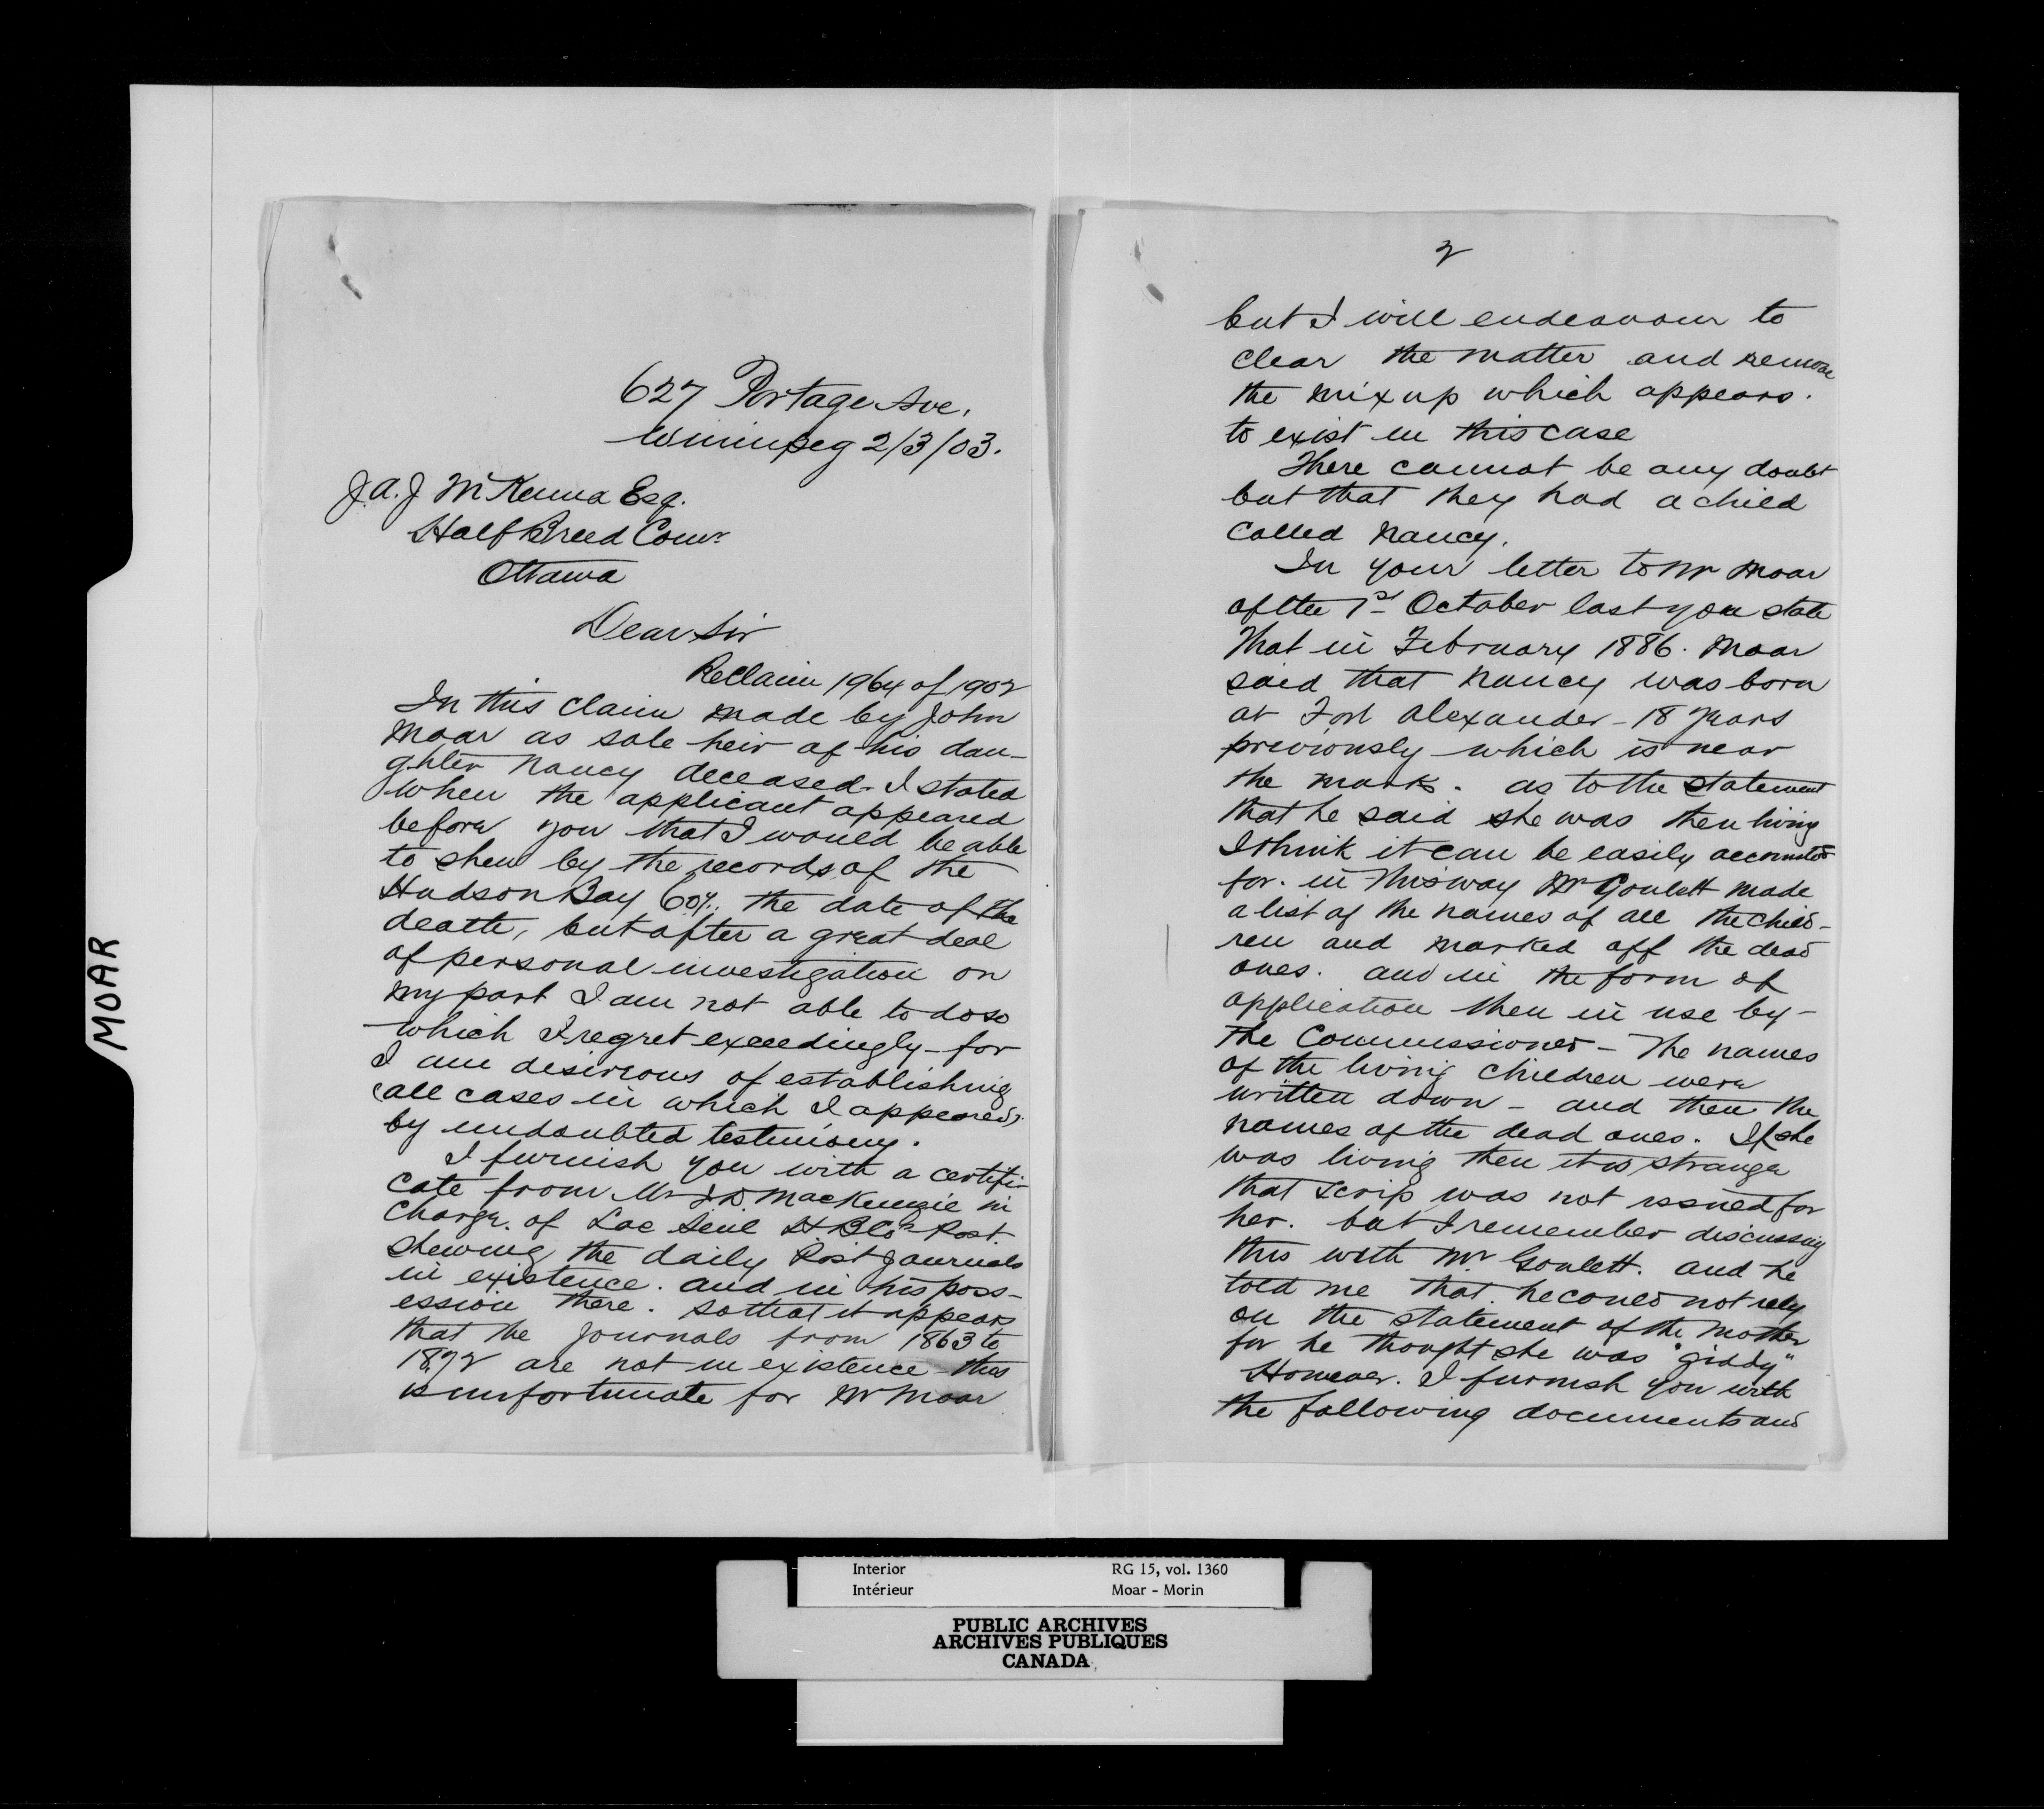 MOAR
627 Portage Ave.
Winnipeg 2/3/03.
J.A.J McKenna Esq.
Half Breed Comr
Ottawa
Dear Sir
Re Claim 1964 of 1902
In this claim made by John
Moar as sole heir of his dau-
ghter Nancy deceased. I stated
when the applicant appeared
before you that I would be able
to shew by the records of the
Hudson Bay Coy. the date of the
death, but after a great deal
of personal investigation on
my part I am not able to do so
which I regret exceedingly - for
I am desirious of establishing
all cases in which I appeared,
by undoubted testimony.
I furnish you with a certifi-
cate from Mr J.D. MacKenzie in
charge. of Lac Seul H.B.Co's Post
shewing the daily Post Journals
in existence. and in his poss-
ession there. so that it appears
that the Journals from 1863 to
1872 are not in existence - this
is unfortunate for Mr Moar
2
but I will endeavour to
clear the matter and remove
the mixup which appears.
to exist in this case
There cannot be any doubt
but that they had a child
called Nancy.
In your letter to Mr Moar
of the 1st October last you state
that in February 1886. Moar
said that Nancy was born
at Fort Alexander - 18 years
previously which is near
the mark. as to the statement
that he said she was then living
I think it can be easily accounted
for. in this way Mr Goulett made
a list of the names of all the child-
ren and marked off the dead
ones. and in the form of
application then in use by -
the Commissioner - The names
of the living children were
written down - and then the
names of the dead ones. If she
was living then it is strange
that scrip was not issued for
her. but I remember discussing
this with Mr Goulett. and he
told me that he could not rely
on the statement of the mother
for he thought she was "giddy"
However. I furnish you with
the following documents and
Interior RG 15, vol. 1360
Intérieur Moar - Morin
PUBLIC ARCHIVES
ARCHIVES PUBLIQUES
CANADA